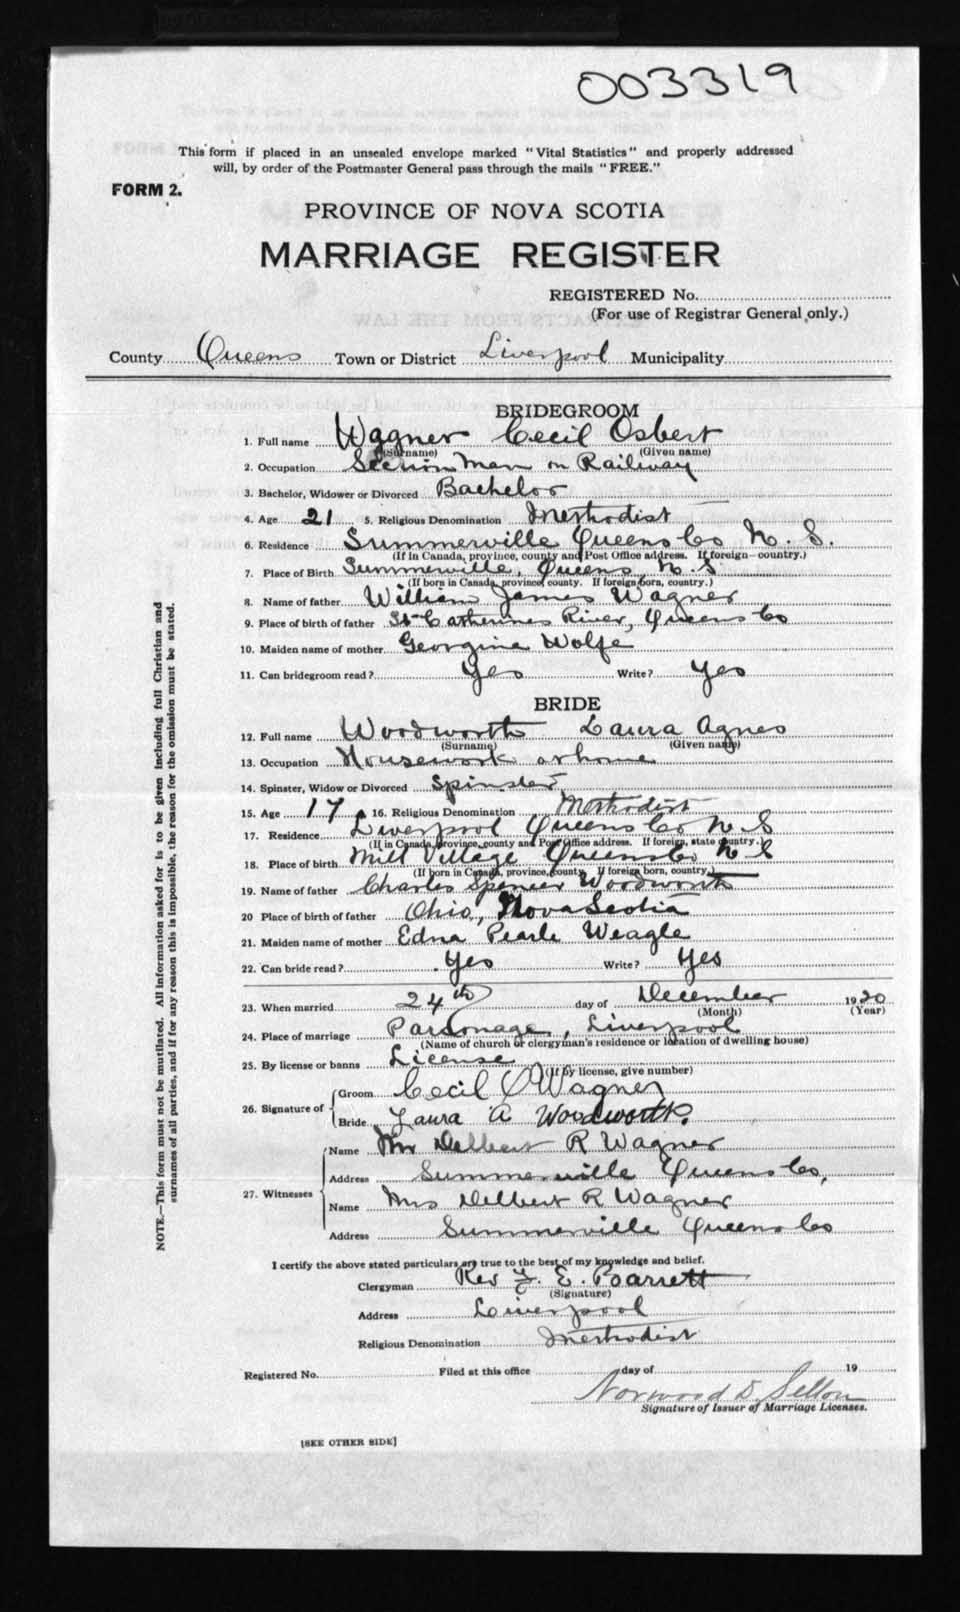 003319
This form if placed in an unsealed envelope marked "Vital Statistics" and properly addressed
will, by order of the Postmaster General pass through the mails "FREE."
FORM 2.
PROVINCE OF NOVA SCOTIA
MARRIAGE REGISTER
REGISTERED No.
(For use of Registrar General only.)
County Queens Town or District Liverpool Municipality
BRIDEGROOM
1. Full name Wagner Cecil Osbert
(Surname) (Given name)
2. Occupation Section Man on Railway
3. Bachelor, Widower or Divorced Bachelor
4. Age 21 5. Religious Denomination Methodist
6. Residence Summerville Queens Co N. S.
(If in Canada, province, county and Post Office address. If foreign—country.)
7. Place of Birth Summerville, Queens, N. S
(If born in Canada, province, county. If foreign born, country.)
8. Name of father William James Wagner
9. Place of birth of father St Catherines River, Queens Co
10. Maiden name of mother Georgina Wolfe
11. Can bridegroom read? Yes Write? Yes
BRIDE
12. Full name Woodworth Laura Agnes
(Surname) (Given name)
13. Occupation Housework at home
14. Spinster, Widow or Divorced Spinster
15. Age 17 16. Religious Denomination Methodist
17. Residence Liverpool Queens Co N S
(If in Canada, province, county and Post Office address. If foreign, state country.)
18. Place of birth Mill Village Queens Co N S
(If born in Canada, province, county. If foreign born, country.)
19. Name of father Charles Spencer Woodworth
20 Place of birth of father Ohio, Nova Scotia
21. Maiden name of mother Edna Pearle Weagle
22. Can bride read? Yes Write? Yes
23. When married 24th day of December 1920
(Month) (Year)
24. Place of marriage Parsonage, Liverpool
(Name of church or clergyman's residence or location of dwelling house)
25. By license or banns License
(If by license, give number)
26. Signature of Groom Cecil O Wagner
Bride Laura A Woodworth.
27. Witnesses Name Mr Delbert R Wagner
Address Summerville Queens Co,
Name Mrs Delbert R Wagner
Address Summerville Queens Co
I certify the above stated particulars are true to the best of my knowledge and belief.
Clergyman Rev F. E. Barrett
(Signature)
Address Liverpool
Religious Denomination Methodist
Registered No. Filed at this office day of 19
Norwood D. Sellon
Signature of Issuer of Marriage Licenses.
[SEE OTHER SIDE]
NOTE.—This form must not be mutilated. All information asked for is to be given including full Christian and
surnames of all parties, and if for any reason this is impossible, the reason for the omission must be stated.